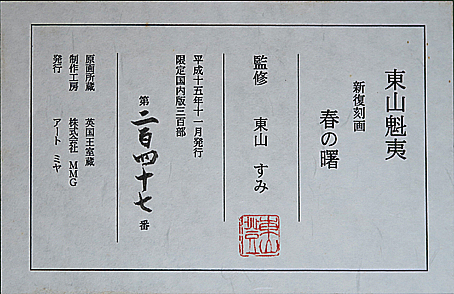 東山魁夷
新復刻画
春の曙
監修 東山 すみ
平成十五年十一月発行
限定国内版三百部
第二百四十七番
原画所蔵 英国王室蔵
制作工房 株式会社 MMG
発行 アート ミヤ